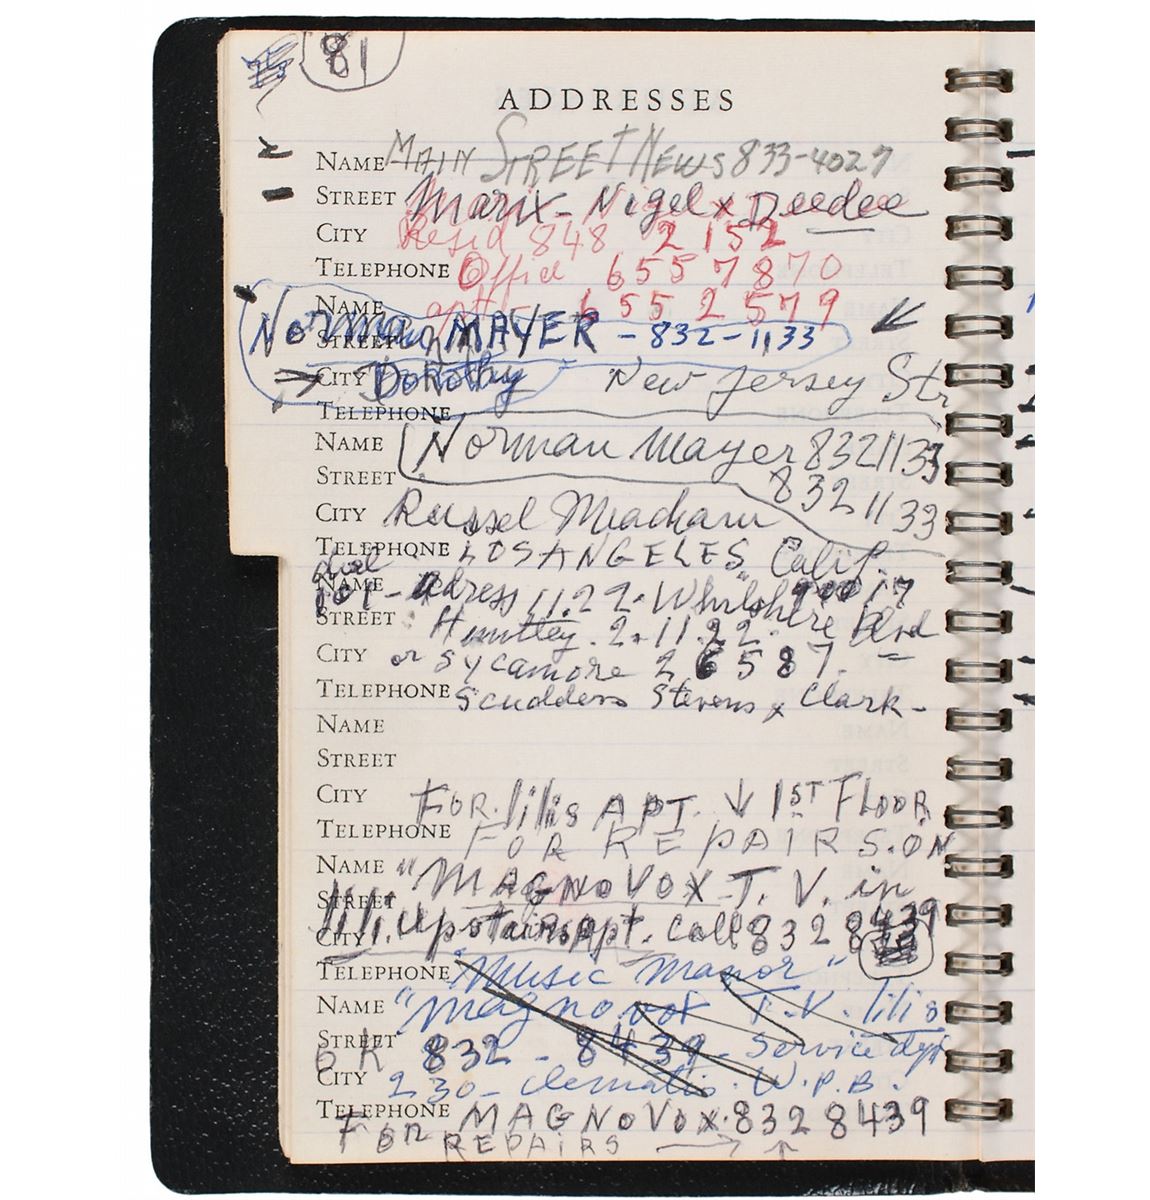 81
ADDRESSES
NAME MAIN STREET NEWS 833-4027
STREET Marix - Nigel x Deedee
CITY Resid 848 2152
TELEPHONE Office 655 7870
NAME 655 2579
STREET Norman MAYER - 832-1133
CITY Dorothy New Jersey Str
TELEPHONE
NAME Norman Mayer 8321133
STREET 832 1133
CITY Russel Meacham
TELEPHONE LOS ANGELES Calif.
NAME adress 1122. Whilshire Blvd
STREET Huntley. 2-1122.
CITY or Sycamore 2 6587.
TELEPHONE Scudders Stevens x Clark-
NAME
STREET
CITY FOR. lilis APT. ↓ 1ST FLOOR
TELEPHONE FOR REPAIRS. ON
NAME "MAGNOVOX T. V. in
STREET lili. Upstairs Apt. Call 832 8439
CITY
TELEPHONE "Music Manor"
NAME "magnovox T.V. lilis
STREET OK 832 - 8439 - Service dpt
CITY 230 - Clematis. W.P.B.
TELEPHONE MAGNOVOX. 832 8439
FOR REPAIRS → ↑